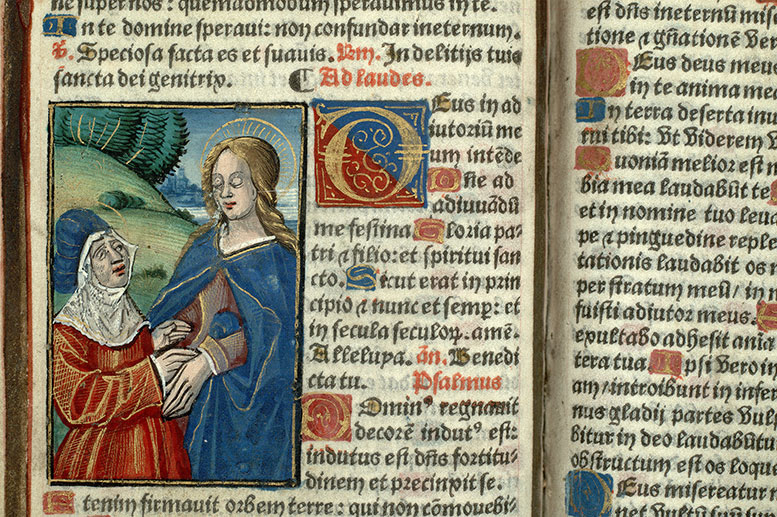 ne super nos: quemadmodum speravimus in te.
In te domine speravi: non confundar ineternum.
℟. Speciosa facta es et suavis. Vm. In delitijs tuis
sancta dei genitrix. Ad laudes.
Deus in ad
iutoriū me
um intēde
Dn̄e ad
adiuvādū
me festina Gloria pa
tri ⁊ filio: et spiritui san
cto. Sicut erat in prin
cipio ⁊ nunc et semp: et
in secula seculoꝝ. amē.
Alleluya. an̄. Benedi
cta tu. Psalmus
Dominꝰ regnavit
decorē indutꝰ est:
indutus est dn̄s fortitu/
dinem et precinxit se.
Etenim firmavit orbem terre: qui non cōmovebi/
est dn̄s ineternū mise
tione ⁊ gn̄ationē
Deus deus meus
in te anima mea
In terra deserta inu
rui tibi: Ut viderem
Quoniā melior est
bia mea laudabūt te
et in nomine tuo leva
pe ⁊ pinguedine reple
tationis laudabit os
per stratum meū/ in
fuisti adiutor meus.
exultabo adhesit
tera tua. Ipsi vero in
am/introibunt in infer
nus gladij partes vulp
bitur in deo laudabūtu
obstructum est os loque
Deus misereatur